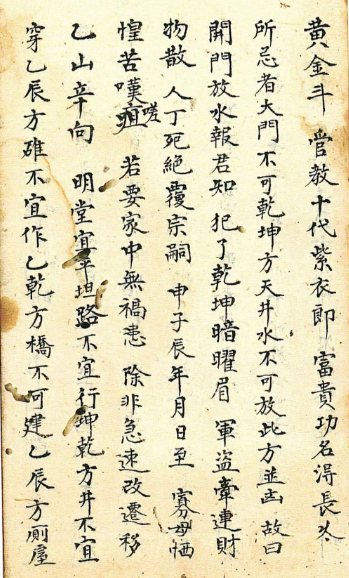 黃金斗 管教十代紫衣郎 富貴功名淂長久
所忌者大門不可乾坤方天井水不可放此方並凶 故曰
開門放水報君知 犯了乾坤暗曜眉 軍盜牽連財
物散 人丁死絶覆宗嗣 申子辰年月日至 寡母恓
惶苦嘆嗟 若要家中無禍患 除非急速改遷移
乙山辛向 明堂宜平坦路不宜行坤乾方井不宜
穿乙辰方碓不宜作乙乾方橋不可建乙辰方廁屋